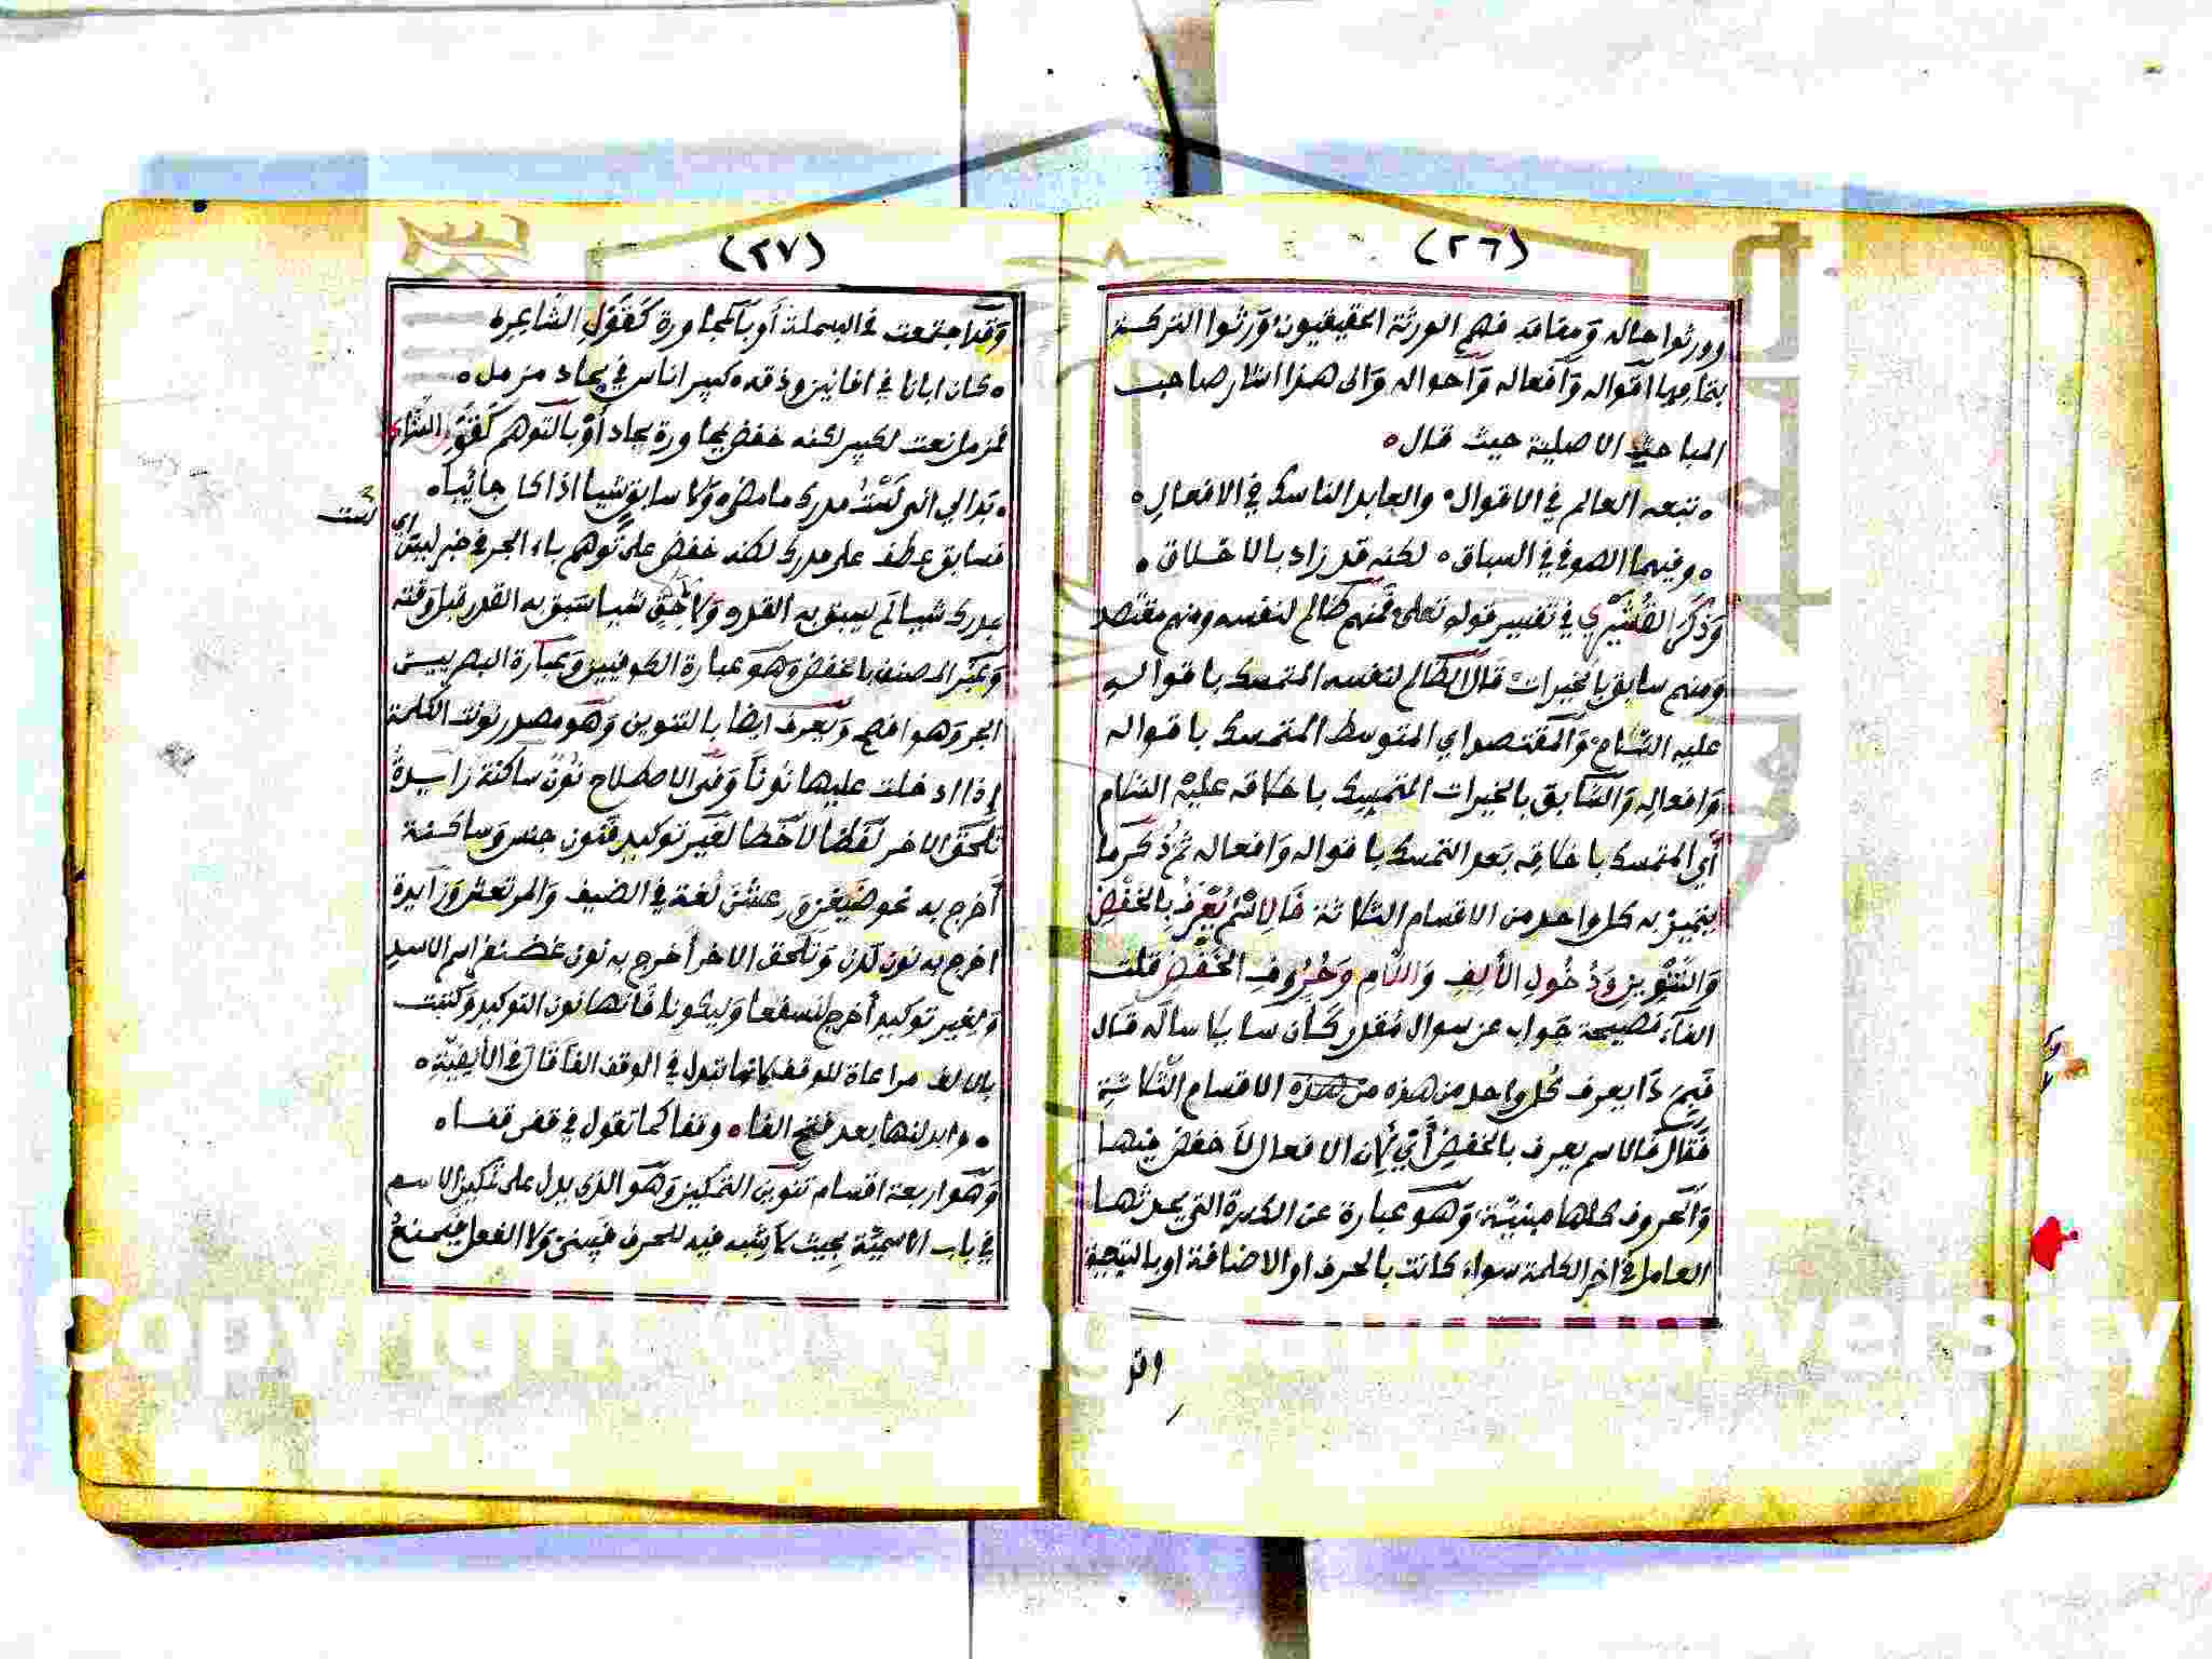 (٢٦)
وورثوا حاله ومقامه فهم الورثة الحقيقيون وورثوا التركة
بتمامها اقواله وافعاله واحواله والى هذا اشار صاحب
المباحث الاصلية حيث قال ه
ه تبعه العالم في الاقوال ه والعابد الناسك في الافعال ه
ه وفيهما الصوفي في السباق ه لكنه قد زاد بالاخلاق ه
وذكر القشيري في تفسير قوله تعلى فمنهم ظالم لنفسه ومنهم مقتصد
ومنهم سابق بالخيرات قال الظالم لنفسه المتمسك باقواله
عليه السلام والمقتصد اي المتوسط المتمسك باقواله
وافعاله والسابق بالخيرات المتمسك باخلاقه عليه السلام
أي المتمسك باخلاقه بعد التمسك باقواله وافعاله ثم ذكر ما
يتميز به كل واحد من الاقسام الثلاثة فالاسم يعرف بالخفض
والتنوين ودخول الألف واللام وحروف الخفض قلت
الفاء فصيحة جواب عن سوال مقدر كأن سايلا ساله قال
فبم ذا يعرف كل واحد من هذه من هذه الاقسام الثلاثة
فقال فالاسم يعرف بالخفض أي لان الافعال لا خفض فيها
والحروف كلها مبنية وهو عبارة عن الكسرة التي يحدثها
العامل في اخر الكلمة سواء كانت بالحرف او الاضافة او بالتبعية
وقد
(٢٧)
وقد اجتمعت في البسملة أو بالمجاورة كقول الشاعر ه
ه كان ابانا في افانين وذقه ه كبير اناس في بجاد مزمل ه
فمزمل نعت لكبير لكنه خفض بمجاورة بجاد أو بالتوهم كقول الشاعر
ه بدا لي انى لست مدرك ما مضى ه ولا سابق شيا اذا كا جائيا ه
لست
فسابق عطف على مدرك لكنه خفض على توهم باء الجر في خبر ليس اي
بمدرك شيا لم يسبق به القدر ولا شيا سبق به القدر قبل وقته
وعبر المصنف بالخفض وهو عبارة الكوفيين وعبارة البصريين
الجر وهو افصح ويعرف ايضا بالتنوين وهو مصدر نونت الكلمة
إذا ادخلت عليها نونا وفى الاصطلاح نون ساكنة زايدة
تلحق الاخر لفظا لا خطا لغير توكيد فنون جنس وساكنة
أخرج به نحو ضيفن ورعشن لغة في الضيف والمرتعش وزايدة
اخرج به نون لدن وتلحق الاخر أخرج به نون غضنفر اسم الاسد
ولغير توكيد أخرج لنسفعا وليكونا فانها نون التوكيد وكتبت
بالالف مراعاة للوقف لانها تبدل في الوقف الفا قال في الألفية ه
ه وابدلنها بعد فتح الفا ه وقفا كما تقول في قفن قفا ه
وهو اربعة اقسام تنوين التمكين وهو الذي يدل على تمكين الاسم
في باب الاسمية بحيث لا يشبه فيه للحرف فيبنى ولا الفعل فيمنع